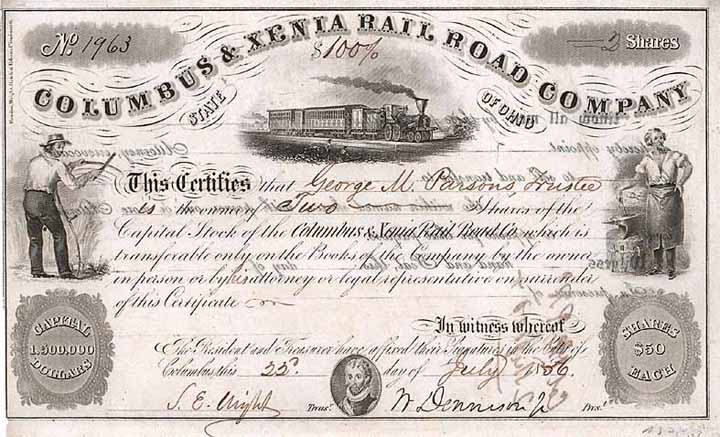 No. 1963
2 Shares
COLUMBUS & XENIA RAIL ROAD COMPANY
$100%
STATE OF OHIO
This Certifies that George M. Parsons, Trustee
is the owner of Two Shares of the
Capital Stock of the Columbus & Xenia Rail Road Co. which is
transferable only on the Books of the Company by the owner
in person or by his attorney or legal representative on surrender
of this Certificate
CAPITAL 1.500,000 DOLLARS
SHARES $50 EACH
In witness whereof
The President and Treasurer have affixed their Signatures in the City of
Columbus, this 22d day of July 1856
S. E. Wright Treasr.
W. Dennison Jr Prest.